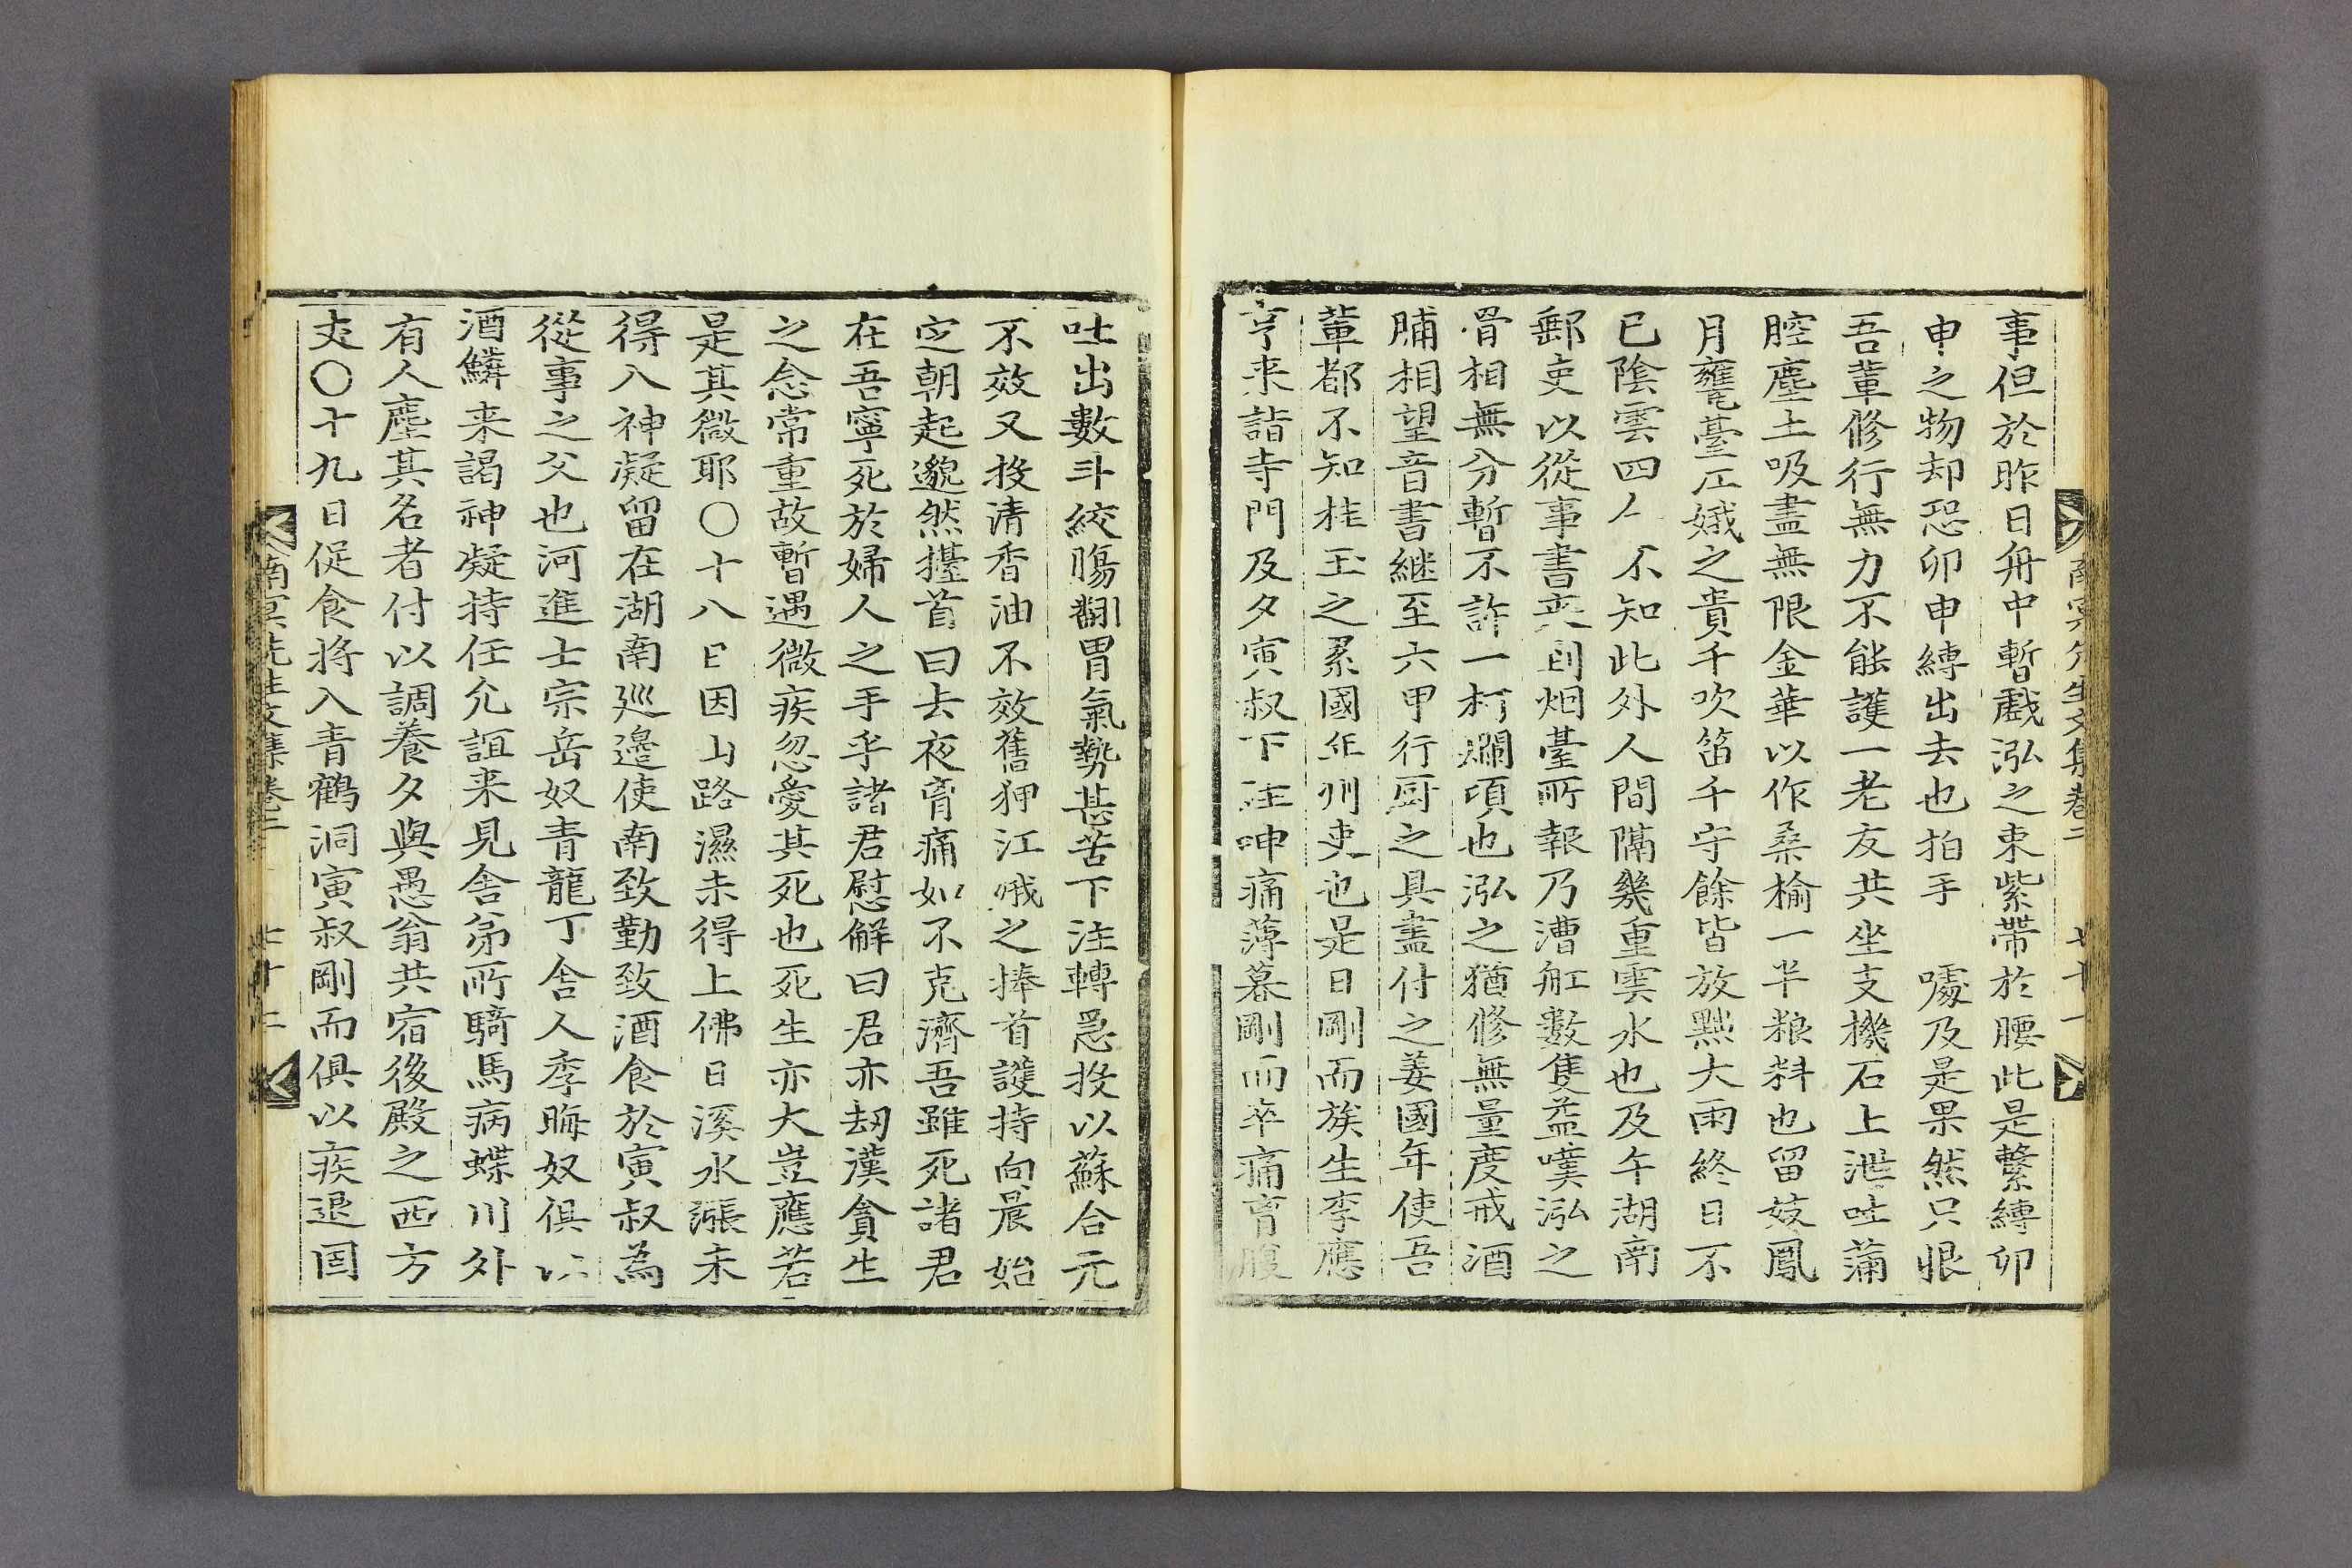 事但於昨日舟中暫戱泓之束紫帶於腰此是繫縛卯
申之物却恐卯申縛出去也拍手 噱及是果然只恨
吾輩修行無力不能護一老友共坐支機石上泄吐蒲
腔塵土吸盡無限金華以作桑榆一半粮料也留妓鳳
月甕臺江娥之貴千吹笛千守餘皆放黜大雨終日不
已陰雲四人 不知此外人間隔幾重雲水也及午湖南
郵吏以從事書来到烟臺所報乃漕舡數隻益嘆泓之
骨相無分暫不許一柯爛項也泓之猶修無量度戒酒
脯相望音書継至六甲行厨之具盡付之姜國年使吾
輩都不知桂玉之累國年州吏也是日剛而族生李應
亨来詣寺門及夕寅叔下注呻痛薄暮剛而卒痛胷腹
南冥先生文集卷二 七十一
吐出數斗絞膓翻胃氣勢甚苦下注轉急投以蘇合元
不效又投清香油不效舊狎江娥之捧首護持向晨始
定朝起邈然擡首曰去夜胷痛如不克濟吾雖死諸君
在吾寧死於婦人之手乎諸君慰解曰君亦刼漢貪生
之念常重故暫遇微疾忽愛其死也死生亦大豈應若
是其微耶〇十八日因山路濕未得上佛日溪水漲未
得入神凝留在湖南廵邉使南致勤致酒食於寅叔為
從事之父也河進士宗岳奴青龍丁舍人季晦奴俱以
酒鱗来謁神凝持任允誼来見舍弟所騎馬病蝶川外
有人塵其名者付以調養夕與愚翁共宿後殿之西方
丈〇十九日促食将入青鶴洞寅叔剛而俱以疾退固
南冥先生文集卷二 七十二